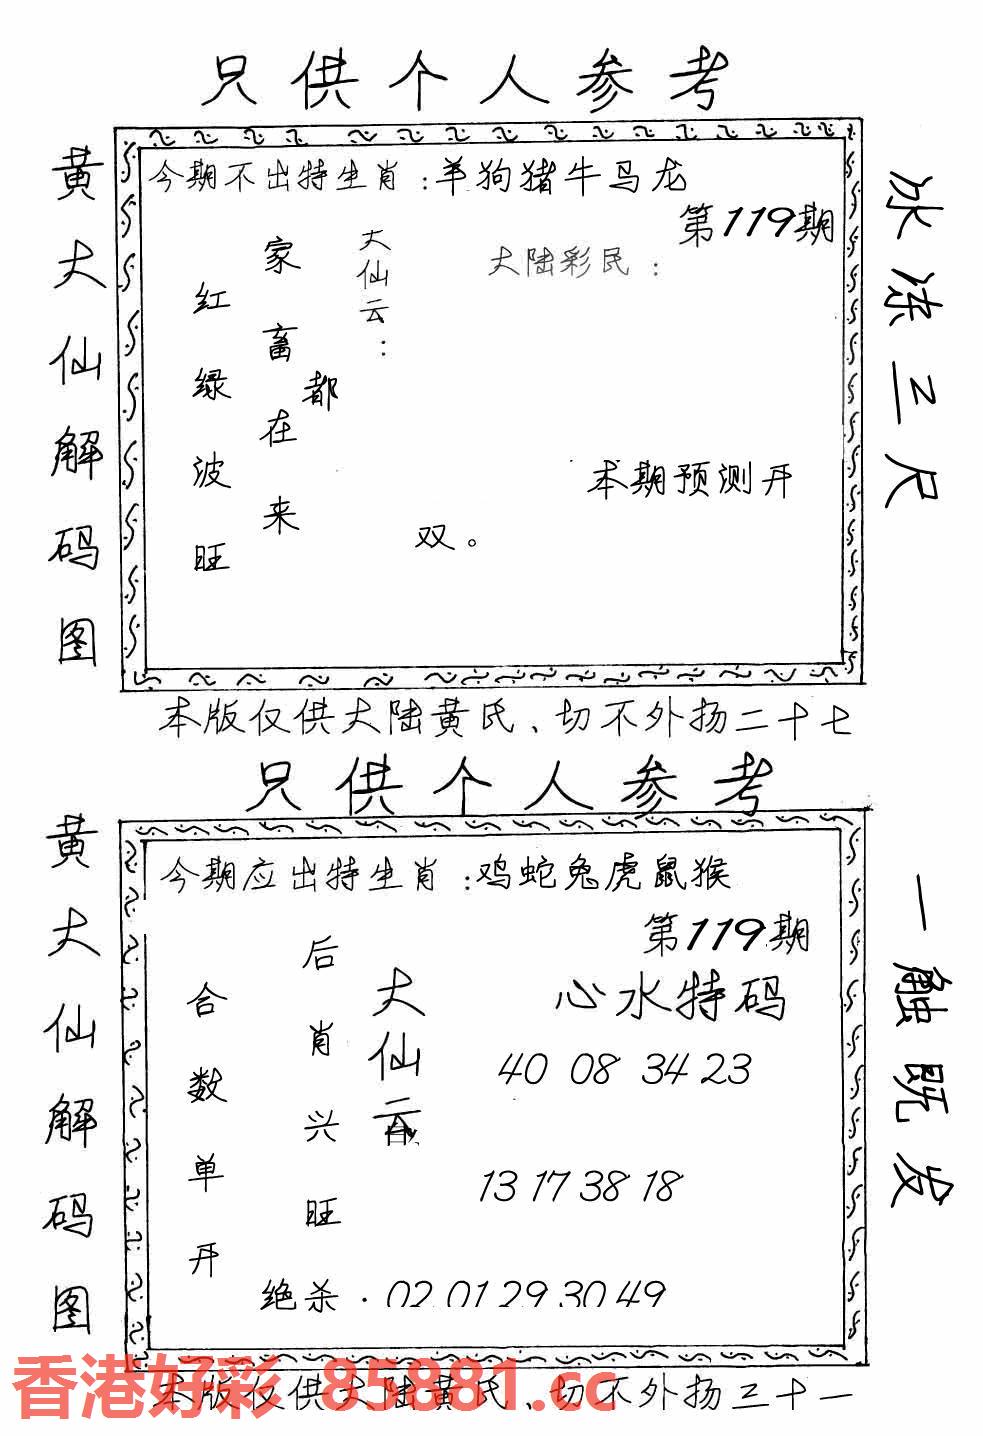 只供个人参考
黄大仙解码图
今期不出特生肖:羊狗猪牛马龙
第119期
大陆彩民:
大仙云:
家畜都在来
红绿波旺
本期预测开
双。
冰冻三尺
本版仅供大陆黄氏、切不外扬二十七
只供个人参考
黄大仙解码图
今期应出特生肖:鸡蛇兔虎鼠猴
第119期
心水特码
大仙云
后肖兴旺
合数单开
40 08 34 23
13 17 38 18
绝杀·02 01 29 30 49
一触既发
香港好彩 85881.cc
本版仅供大陆黄氏、切不外扬三十一